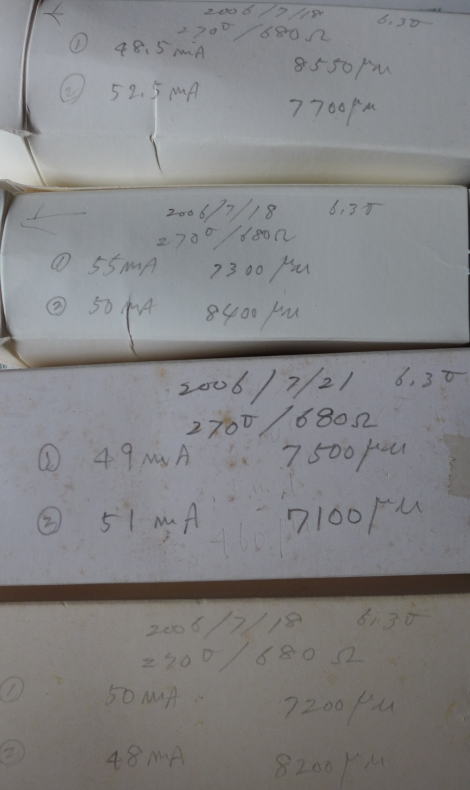 2006/7/18 6.3V
270V/680Ω
① 48.5mA 8550μʊ
② 52.5mA 7700μʊ
2006/7/18 6.3V
270V/680Ω
① 55mA 7300μʊ
② 50mA 8400μʊ
2006/7/21 6.3V
270V/680Ω
① 49mA 7500μʊ
② 51mA 7100μʊ
2006/7/18 6.3V
270V/680Ω
① 50mA 7200μʊ
② 48mA 8200μʊ